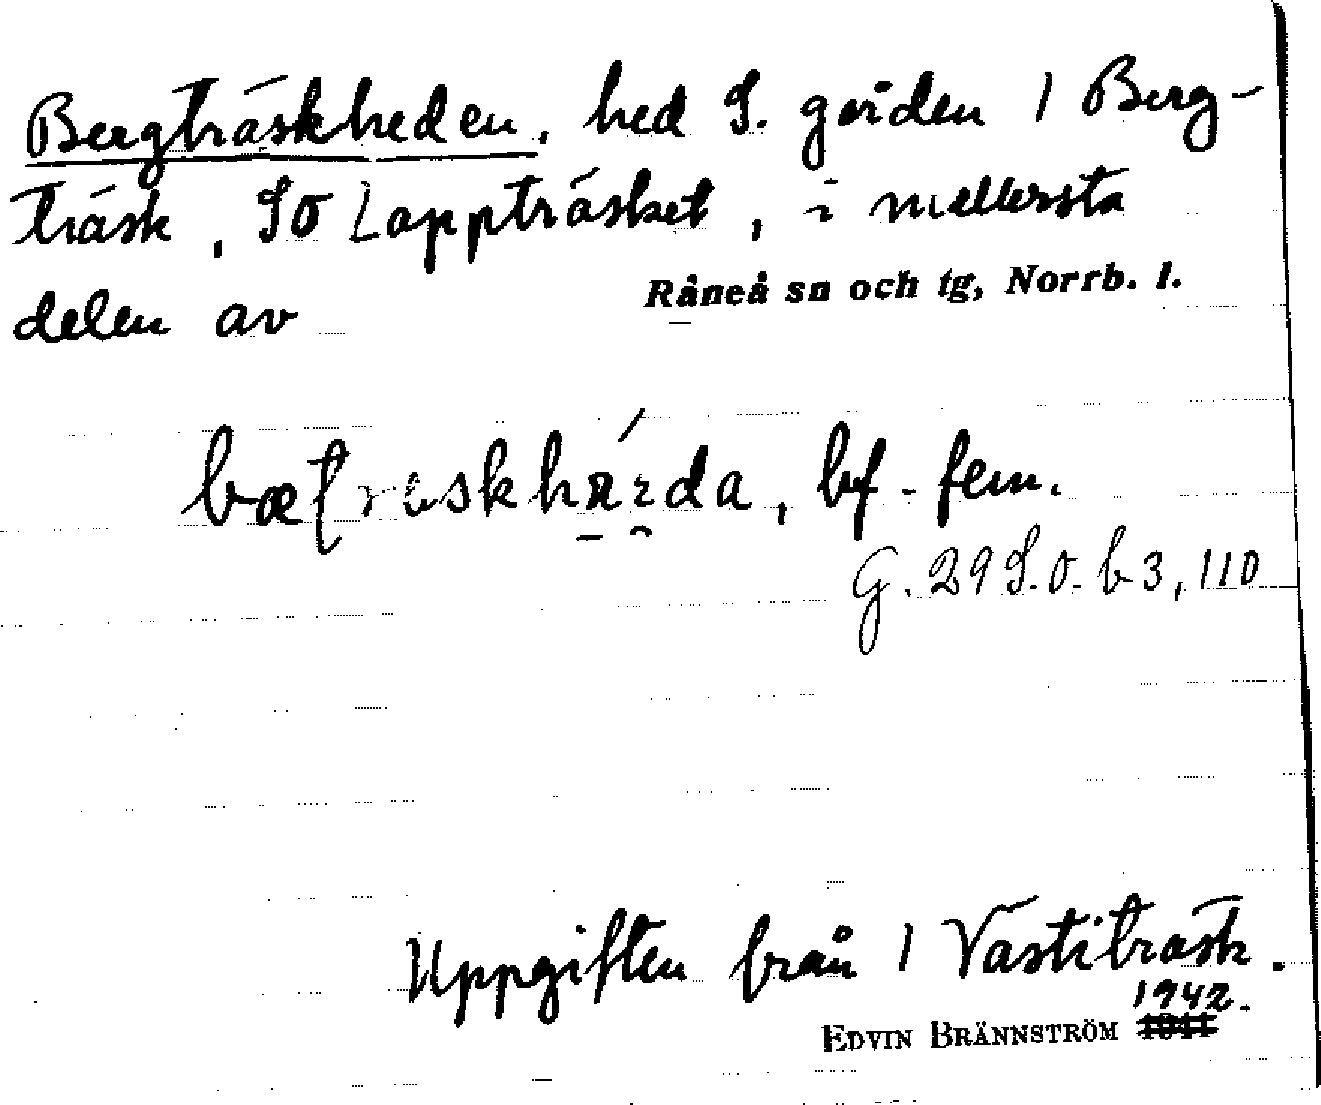 Bergträskheden, hed S. gården 1 Berg-
träsk, SO Lappträsket, i mellersta
delen av Råneå sn och tg, Norrb. l.
bf. fem.
G. 29 S.O. b 3, 110
Uppgiften från 1 Västiträsk.
1942.
EDVIN BRÄNNSTRÖM 1941